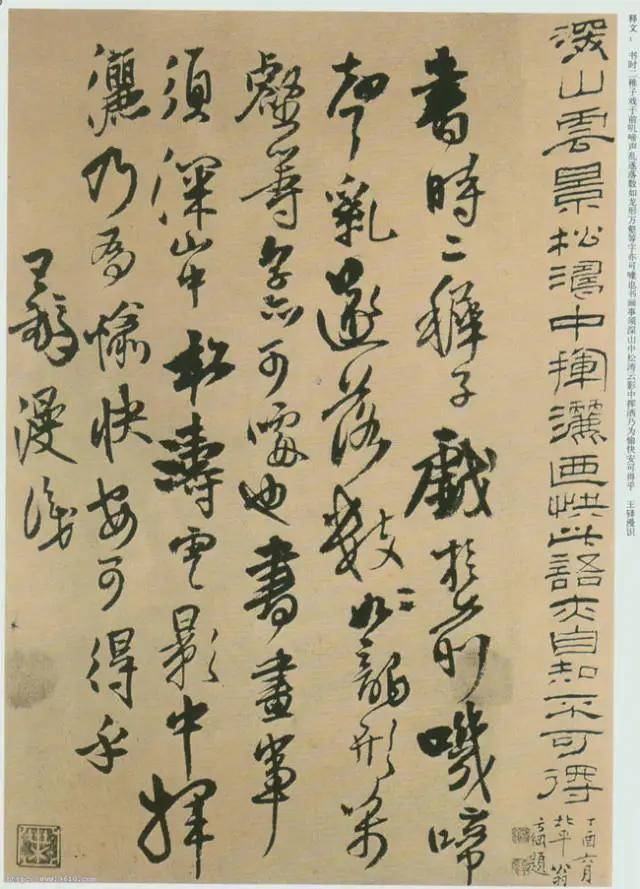 释文： 书时二稚子戏于前叽啼声乱遂落数如龙形万壑等字亦可噱也书画事须深山中松涛云影中挥洒乃为愉快安可得乎 王铎漫识
深山雲景松濤中揮灑画快此語夫自知不可得
丁酉六月
北平翁
方綱題
書時二稺子戲於前嘰啼
聲亂遂落數如龍形万
壑等字亦可噱也書畫事
須深山中松濤雲影中揮
灑乃為愉快安可得乎
王鐸漫識